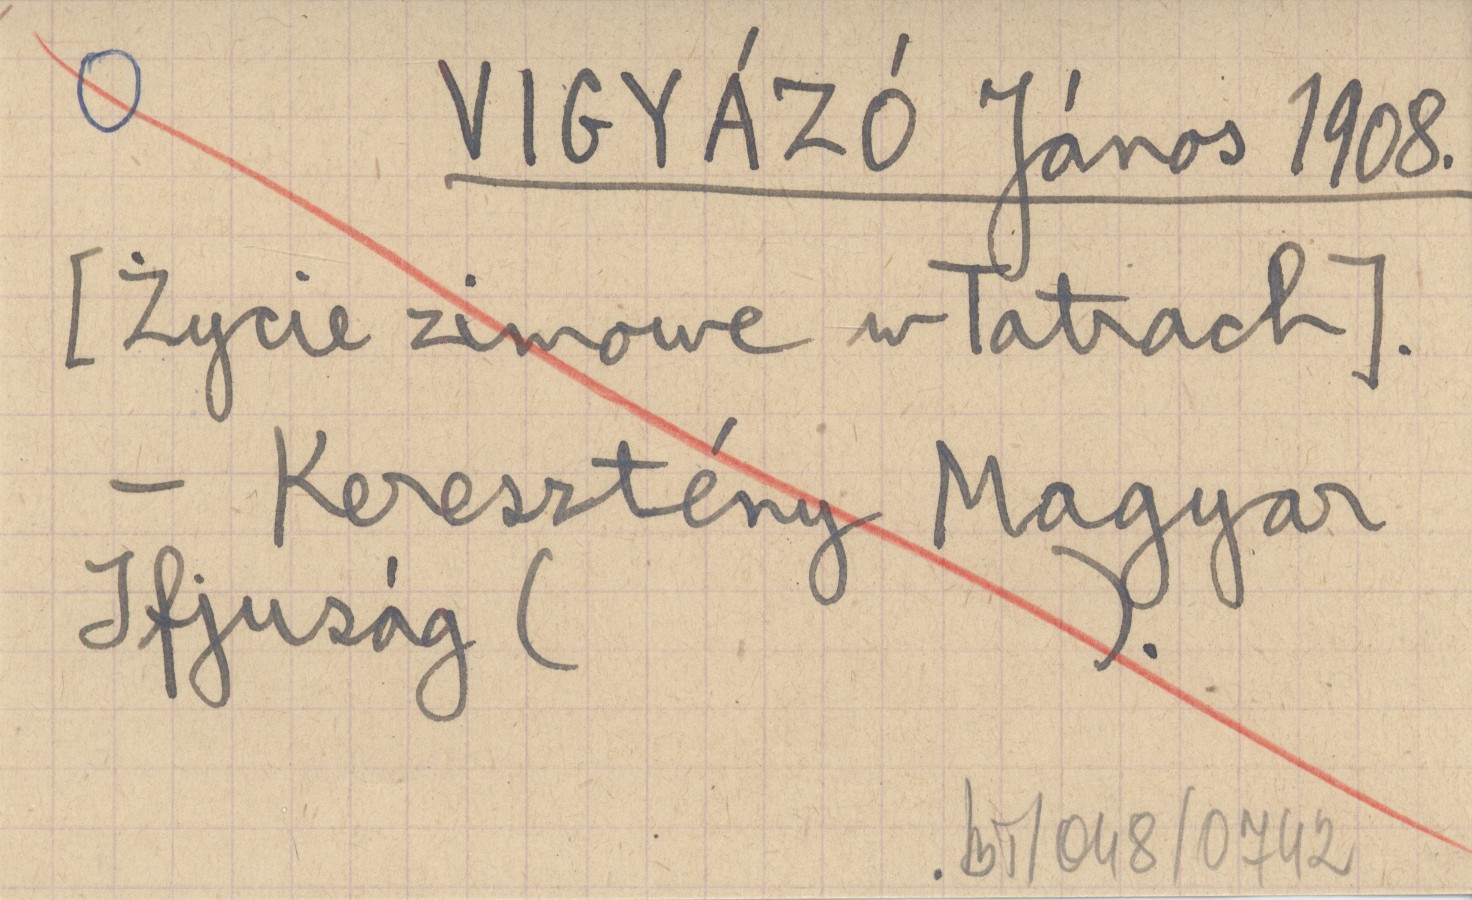 VIGYÁZÓ János 1908.
[Życie zimowe w Tatrach].
– Keresztény Magyar
Ifjuság (                    ).
bT/048/0742